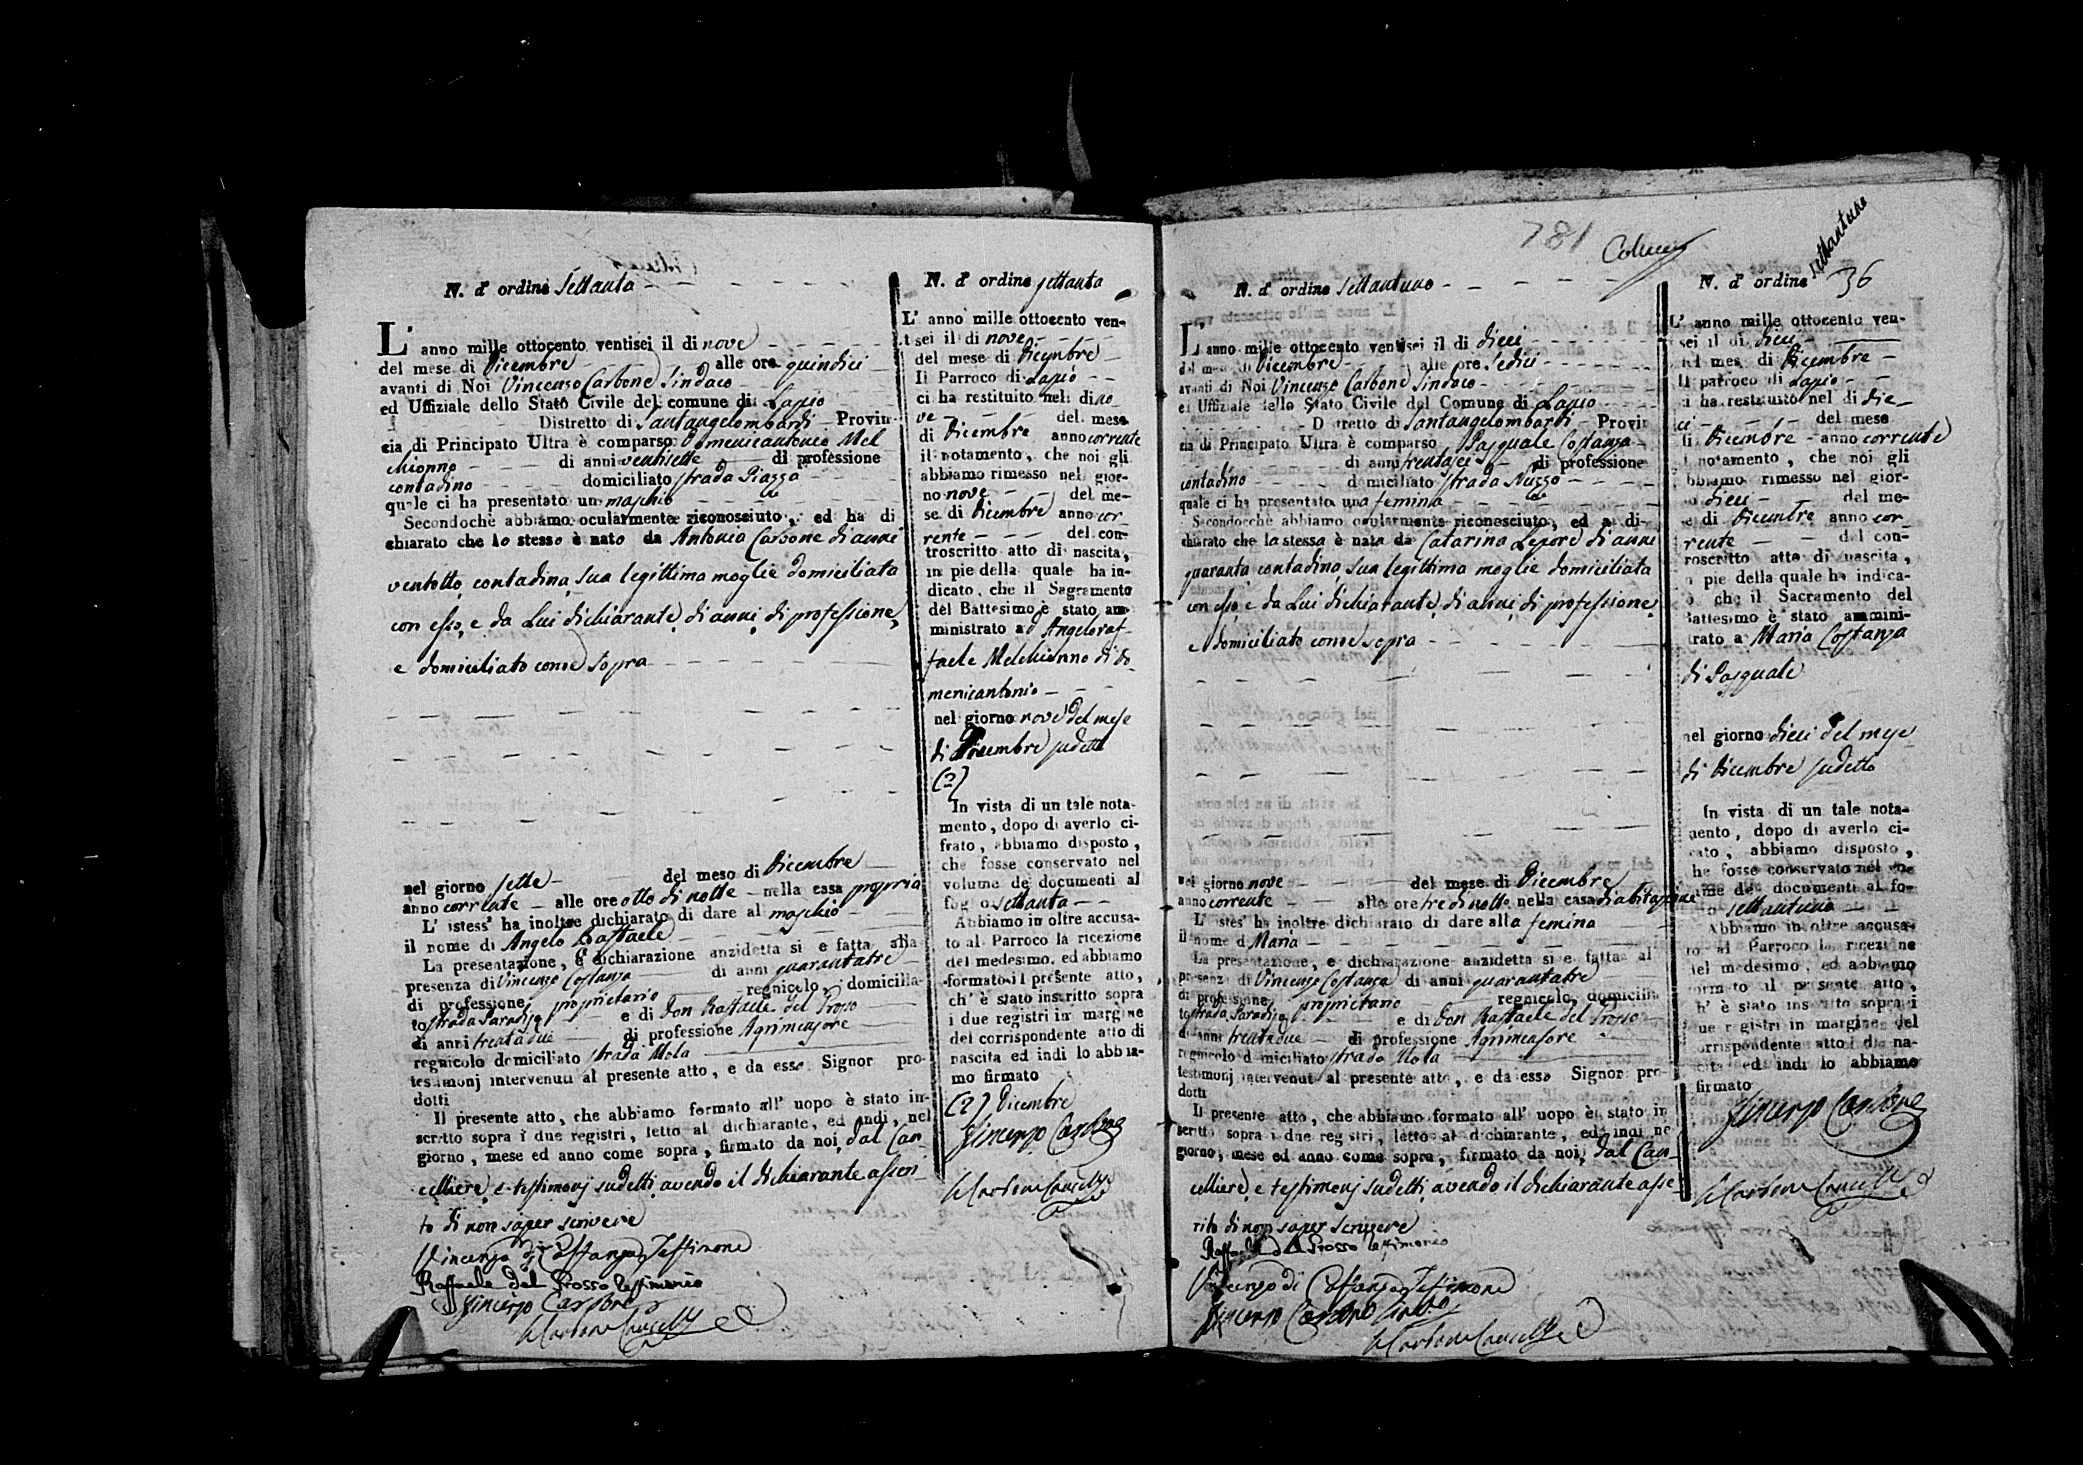 N. d' ordine Settanta
L' anno mille ottocento ventisei il di nove
del mese di Dicembre alle ore quindici
avanti di Noi Vincenzo Carbone Sindaco
ed Uffiziale dello Stato Civile del comune di Lapio
Distretto di Santangelombardi Provin-
cia di Principato Ultra è comparso Domenicantonio Mel
chionno di anni ventisette di professione
contadino domiciliato strada Piazza
quale ci ha presentato un maschio
Secondochè abbiamo ocularmente riconosciuto, ed ha di
chiarato che lo stesso è nato da Antonia Carbone di anni
ventotto contadina sua legittima moglie domiciliata
con esso, e da Lui dichiarante, di anni, di professione,
e domiciliato come sopra
nel giorno sette del mese di Dicembre
anno corrente alle ore otto di notte nella casa propria
L' istess' ha inoltre dichiarato di dare al maschio
il nome di Angelo Raffaele
La presentazione, e dichiarazione anzidetta si e fatta alla
presenza di Vincenzo Costanza di anni quarantatre
di professione proprietario regnicolo, domicilia-
to strada Paradiso e di Don Raffaele del Prosso
di anni trentadue di professione Agrimensore
regnicolo domiciliato strada Mola
testimonj intervenuti al presente atto, e da esso Signor pro-
dotti
Il presente atto, che abbiamo formato all' uopo è stato in-
scritto sopra i due registri, letto al dichiarante, ed indi, nel
giorno, mese ed anno come sopra, firmato da noi, dal Can-
celliere, e testimonj sudetti avendo il dichiarante asseri-
to di non saper scrivere
Vincenzo di Costanza Testimone
Raffaele del Prosso testimonio
Vincenzo Carbone
N. d' ordine settanta
L' anno mille ottocento ven-
tisei il di nove
del mese di Dicembre
Il Parroco di Lapio
ci ha restituito nel di no
ve del mese
di Dicembre anno corrente
il notamento, che noi gli
abbiamo rimesso nel gior-
no nove del me-
se di Dicembre anno cor
rente del con-
troscritto atto di nascita,
in pie della quale ha in-
dicato, che il Sagramento
del Battesimo è stato am-
ministrato ad Angeloraf-
faele Melchionno di Do-
menicantonio
nel giorno nove del mese
di Dicembre sudetto
(2)
In vista di un tale nota-
mento, dopo di averlo ci-
frato, abbiamo disposto,
che fosse conservato nel
volume de' documenti al
foglio settanta
Abbiamo in oltre accusa-
to al Parroco la ricezione
del medesimo, ed abbiamo
formato il presente atto,
ch' è stato inscritto sopra
i due registri in margine
del corrispondente atto di
nascita ed indi lo abbia-
mo firmato
(2) Dicembre
Vincenzo Carbone
781
36
settantuno
N. d' ordine Settantuno
L' anno mille ottocento ventisei il di dieci
del mese di Dicembre alle ore sedici
avanti di Noi Vincenzo Carbone Sindaco
ed Uffiziale dello Stato Civile del Comune di Lapio
Distretto di Santangelombardi Provin
cia di Principato Ultra è comparso Pasquale Costanza
di anni trentasei di professione
contadino domiciliato strada Nuzzo
quale ci ha presentato una femina
Secondocchè abbiamo ocularmente riconosciuto, ed a di-
chiarato che la stessa è nata da Catarina Lepore di anni
quaranta contadina sua legittima moglie domiciliata
con esso e da Lui dichiarante, di anni, di professione,
e domiciliato come sopra
nel giorno nove del mese di Dicembre
anno corrente alle ore tre di notte nella casa di abitazione
L' istes' ha inoltre dichiarato di dare alla femina
il nome di Maria
La presentazione, e dichiarazione anzidetta si e fatta al
presenza di Vincenzo Costanza di anni quarantatre
di professione proprietario regnicolo, domicilia
to strada Paradiso e di Don Raffaele del Prosso
di anni trentadue di professione Agrimensore
regnicolo domiciliato strada Mola
testimonj intervenuti al presente atto, e da esso Signor pro-
dotti
Il presente atto, che abbiamo formato all' uopo è stato in
scritto sopra i due registri, letto al dichiarante, ed indi ne
giorno, mese ed anno come sopra, firmato da noi, dal Can-
celliere e testimonj sudetti, avendo il dichiarante asse-
rito di non saper scrivere
Raffaele del Prosso testimonio
Vincenzo di Costanza Testimone
Vincenzo Carbone Sindaco
N. d' ordine
L' anno mille ottocento ven-
sei il di dieci
del mese di Dicembre
Il parroco di Lapio
ci ha restituito nel di die-
ci del mese
di Dicembre anno corrente
il notamento, che noi gli
abbiamo rimesso nel gior-
no dieci del me-
se di Dicembre anno cor
rente del con-
troscritto atto di nascita,
in pie della quale ha indica-
to che il Sacramento del
Battesimo è stato ammini-
strato a Maria Costanza
di Pasquale
nel giorno dieci del mese
di Dicembre sudetto
In vista di un tale nota-
mento, dopo di averlo ci-
frato, abbiamo disposto,
che fosse conservato nel vo-
lume de' documenti al fo-
glio settantuno
Abbiamo in oltre accusa-
to al Parroco la ricezione
del medesimo, ed abbiamo
formato il presente atto,
ch' è stato inscritto sopra i
due registri in margine del
corrispondente atto di na-
scita ed indi lo abbiamo
firmato
Vincenzo Carbone